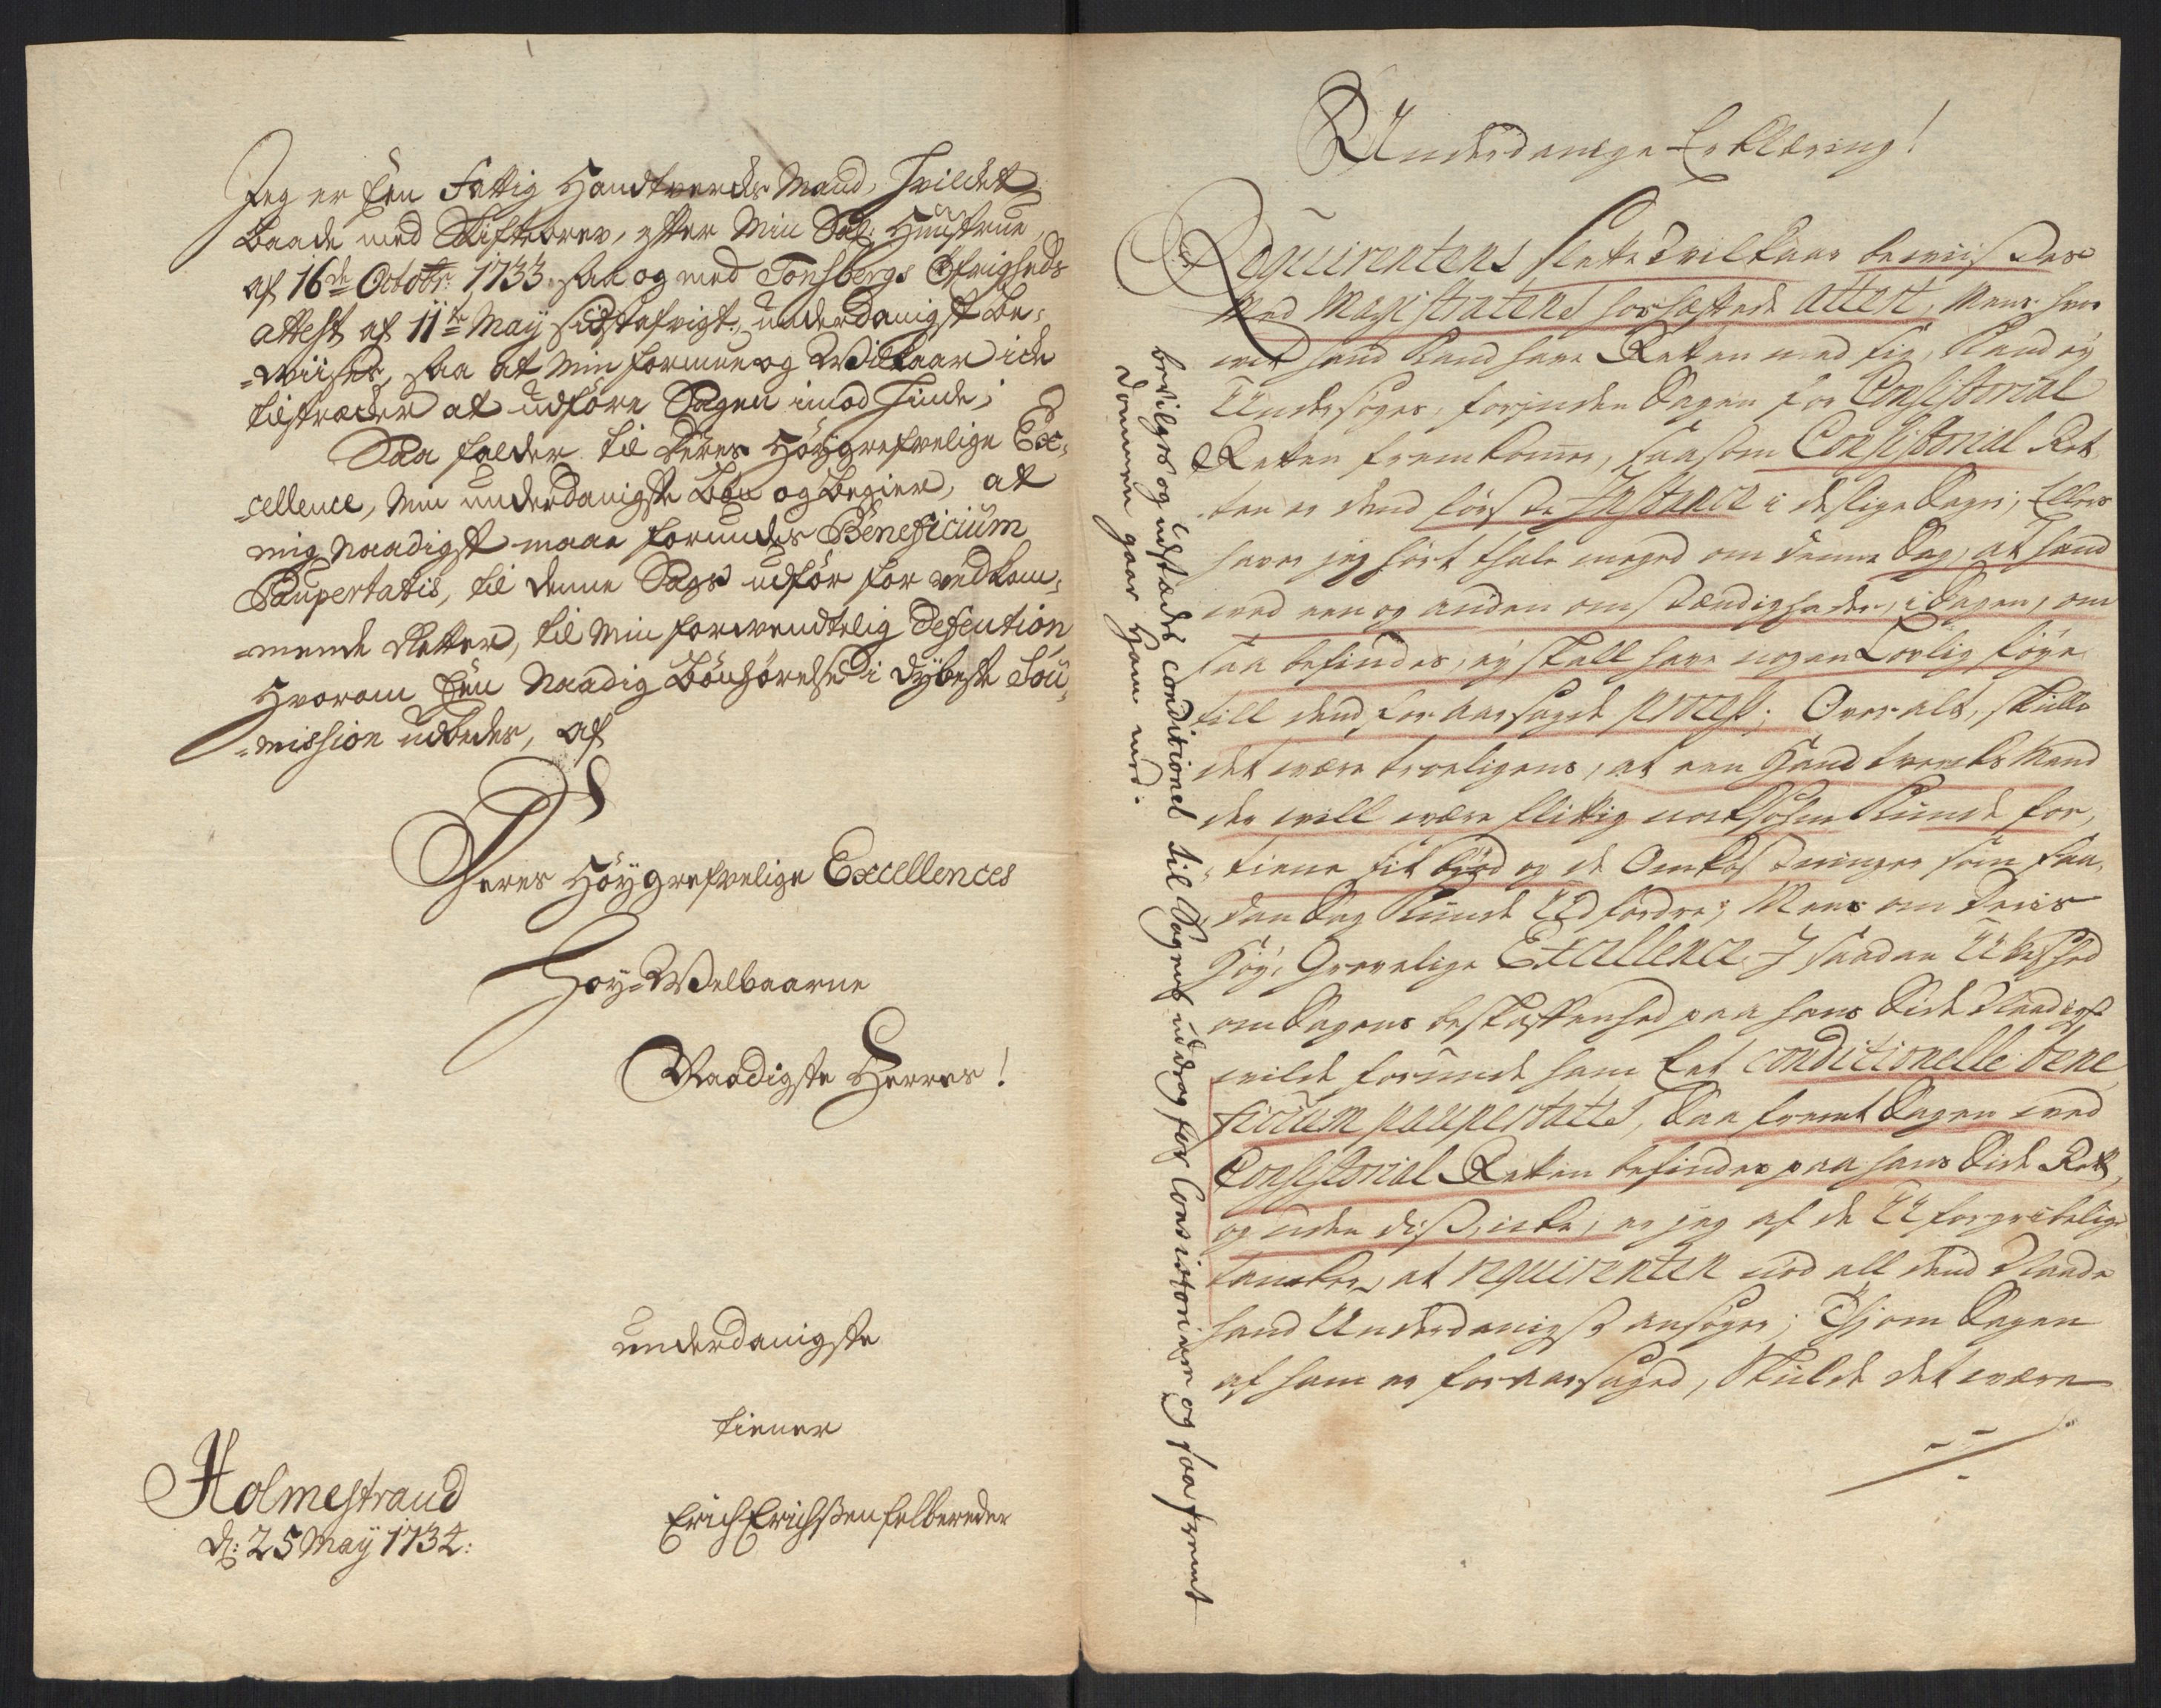 Jeg er Een Fattig Handtverchs Mand, hvilchet
baade med Skiftebrev, efter Min Sal: Hustrue,
af 16de Octobr: 1733. saa og med Tonsbergs Øfrigheds
attest af 11te May sidstafvigt, underdanigst be-
-wiises, saa at Min formue og Wilkaar icke
tilstræcker at udføre Sagen imod hinde;
Saa falder til Deres Høygrefvelige Ex-
-cellence, Min underdanigste Bøn og Begier, at
mig Naadigst maae forundes Beneficium
Paupertatis, til denne Sags udfør for vedkom-
-mende Retter, til Min forvendtelig Defention
Hvorom Een Naadig Bønhørelse i dybeste Sou-
-mission udbedes, af
Deres Høygrefvelige Excellences
Høy-Welbaarne
Naadigste Herres!
underdanigste
tiener
Erich Erichssen felbereder
Holmestrand
d: 25 May 1734:
Underdanige Erklæring!
Requirentens slette Vilkaar bewiises
med Magistratens forfattede Attest, Men hvor
vit hand kand have Retten med sig, kand ey
Undersøges, forinden Sagen for Consistorial
Retten fremkommer, saasom Consistorial Ret
ten er dend første Instance i deslige Sager; Ellers
haver jeg hørt thale meget om denne Sag, at hand
ved een og anden omstændigheder, i Sagen, om
saa befindes, ey skall have nogen Lovlig føye
till dend foraarsagede process; Over alt, skulle
det være troeligens, at een Handtverks Mand
der will være flittig nock som kunde for-
-tiene sit brød og de Omkostninger som saa-
-dan Sag kunde Udfordre; Mens om Deris
Høy-Grevelige Excellence I saadan Uvished
om Sagens beskaffenhed paa hans Side Naadigst
wilde forunde ham Eet conditionelle bene
ficium paupertatis, Saa fremt Sagen ved
Consistorial Retten befindes paa hans Side Rett,
og uden diss, icke, er jeg af de Uforgribelige
tancker, at requirenten nød all dend Naade
hand Underdanigst ansøger; Thj om Sagen
af ham er foraarsaged, skulde det være
bevilges og udstædes conditionel til Sagens uddrag for Consistorium og saafremt
Dommen gaar Ham med.